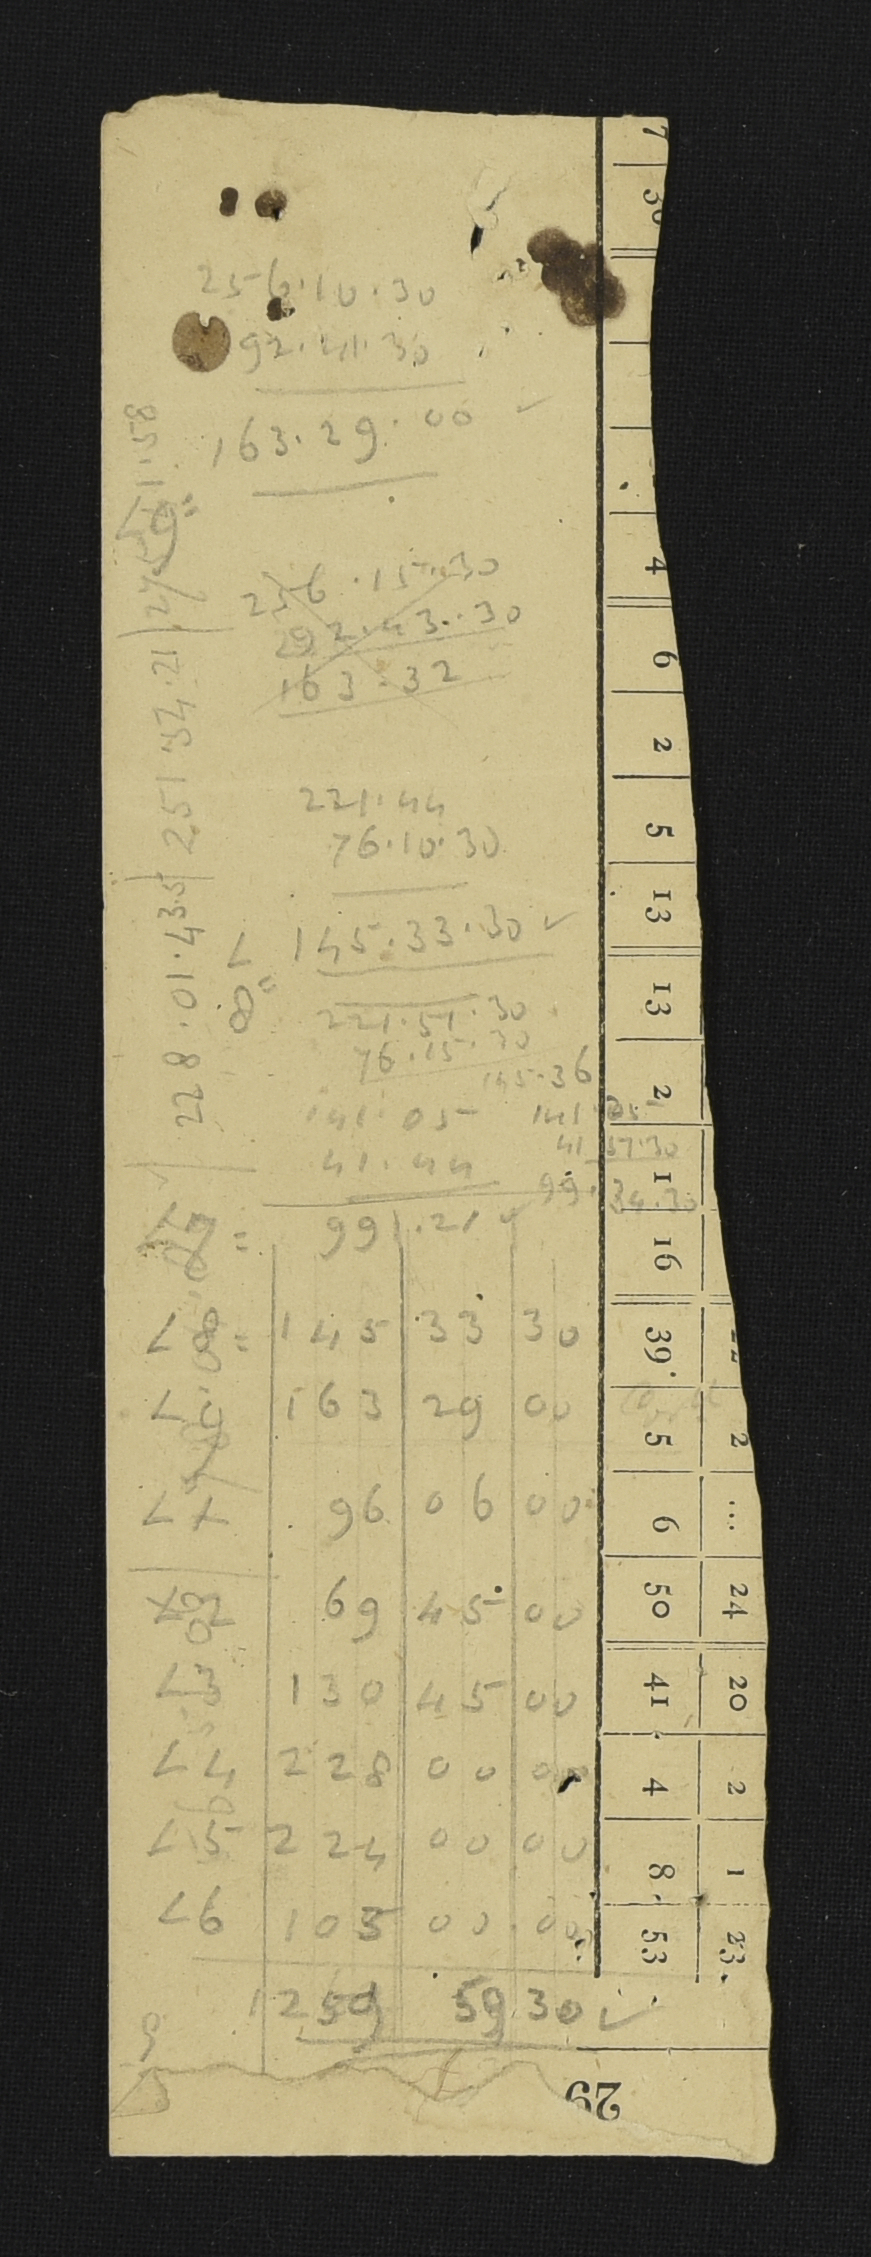 256.10.30
92.41.30
163.29.00 ✓
256.15.30
92.43.30
163.32
221.44
76.10.30
∠ 8 = 145.33.30 ✓
221.51.30
76.15.30
145.36
141.05
41.44
99.21 ✓
141.05
41 57.30
99.34.30
∠ 8 = 145 33 30
∠ 163 29 00
∠ 1 96 06 00
∠ 2 69 45 00
∠ 3 130 45 00
∠ 4 228 00 00
∠ 5 224 00 00
∠ 6 105 00 00
1259 59 30 ✓
228.01.43.5
251 34.21
7
30
4
6
2
5
13
13
2
1
16
39
5
6
50
41
4
8
53
2
...
24
20
2
1
23
29